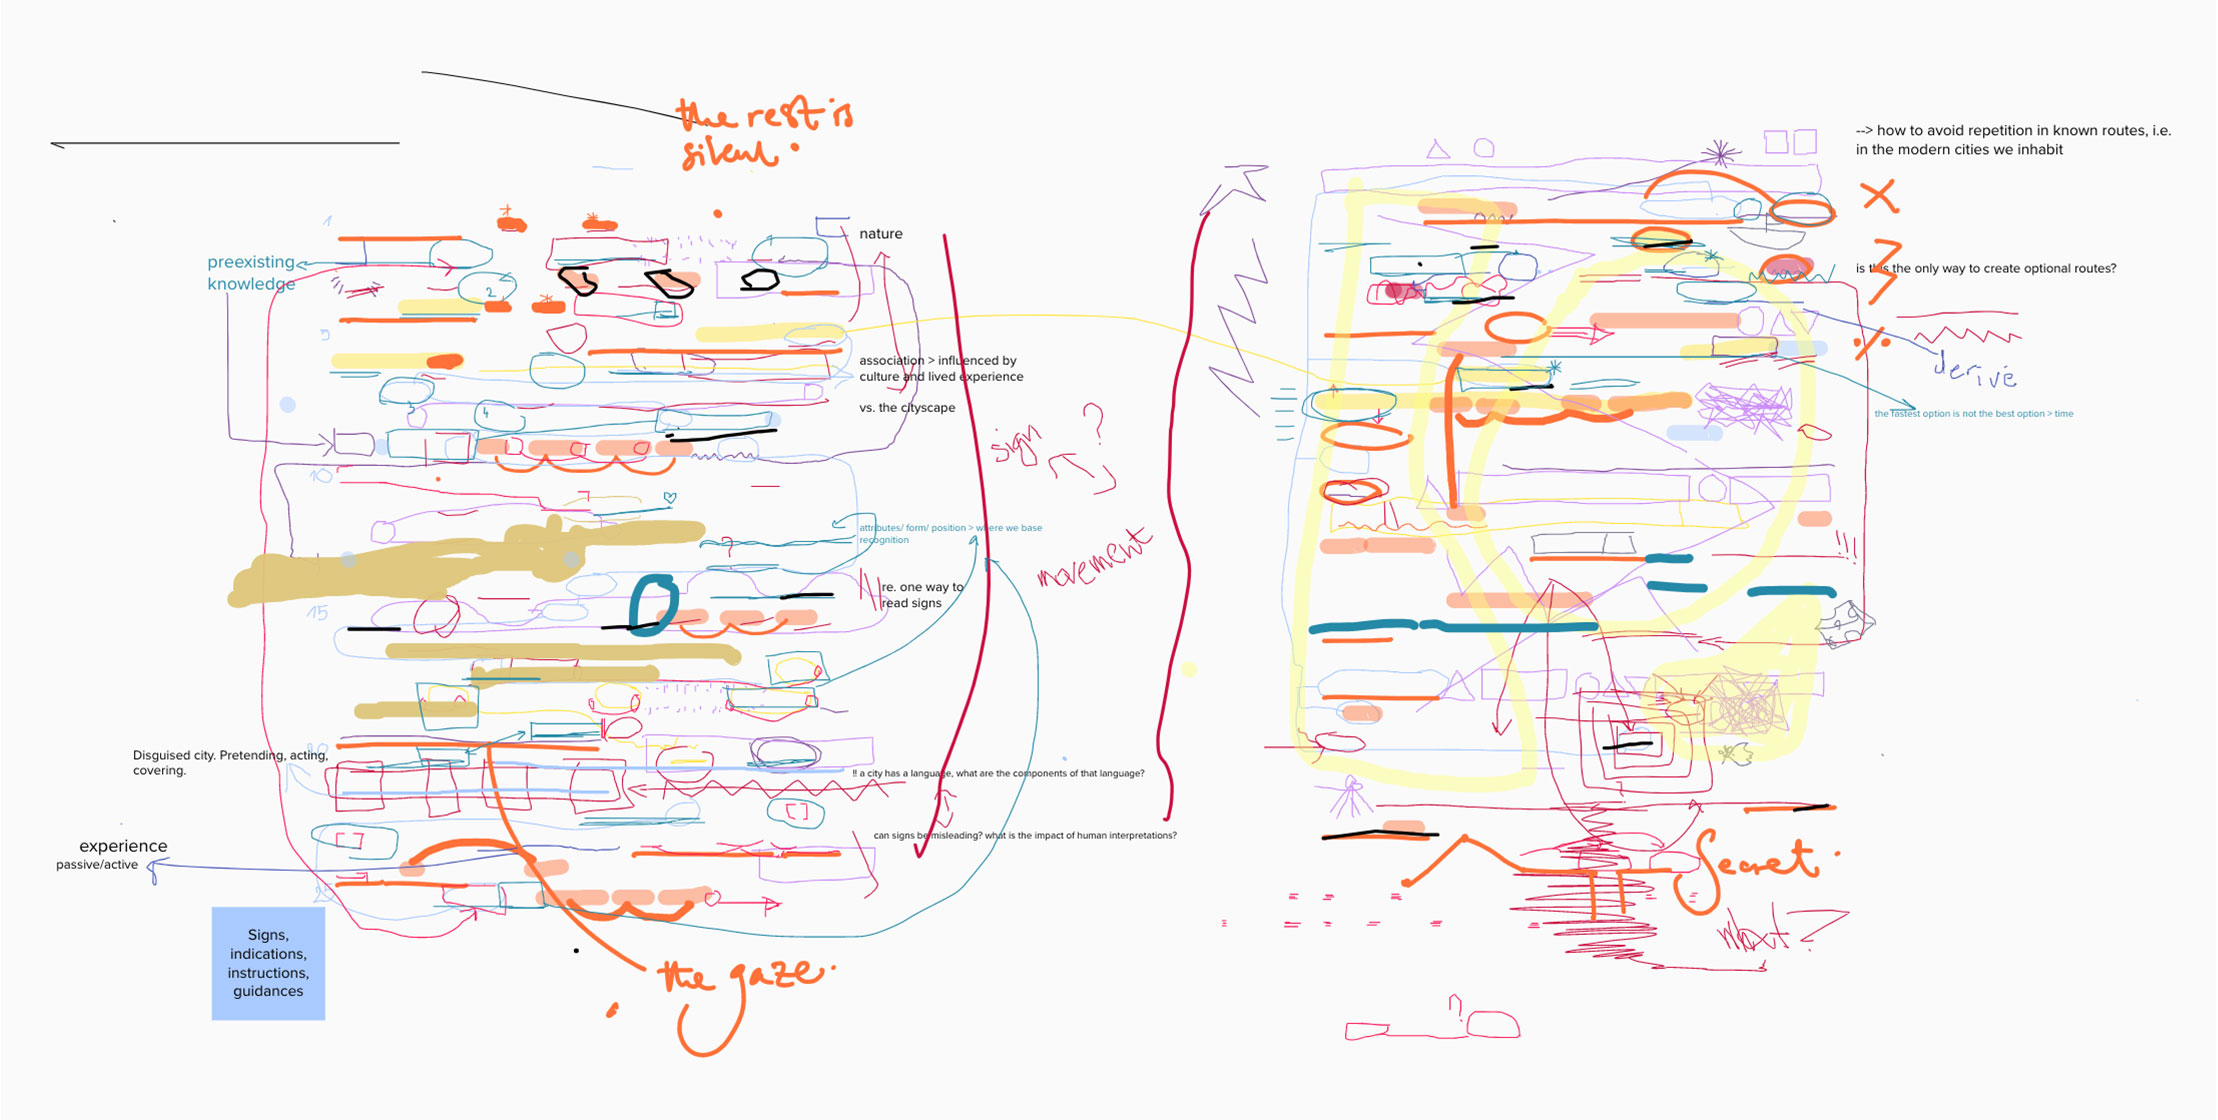 the rest is
silent.
1
nature
preexisting
knowledge
2
association > influenced by
culture and lived experience
3
4
vs. the cityscape
sign ?
10
attributes/ form/ position > where we base
recognition
?
movement
re. one way to
read signs
15
Disguised city. Pretending, acting,
covering.
!! a city has a language, what are the components of that language?
can signs be misleading? what is the impact of human interpretations?
experience
passive/active
Signs,
indications,
instructions,
guidances
the gaze.
--> how to avoid repetition in known routes, i.e.
in the modern cities we inhabit
is this the only way to create optional routes?
derive
the fastest option is not the best option > time
!!!
Secret.
what?
?